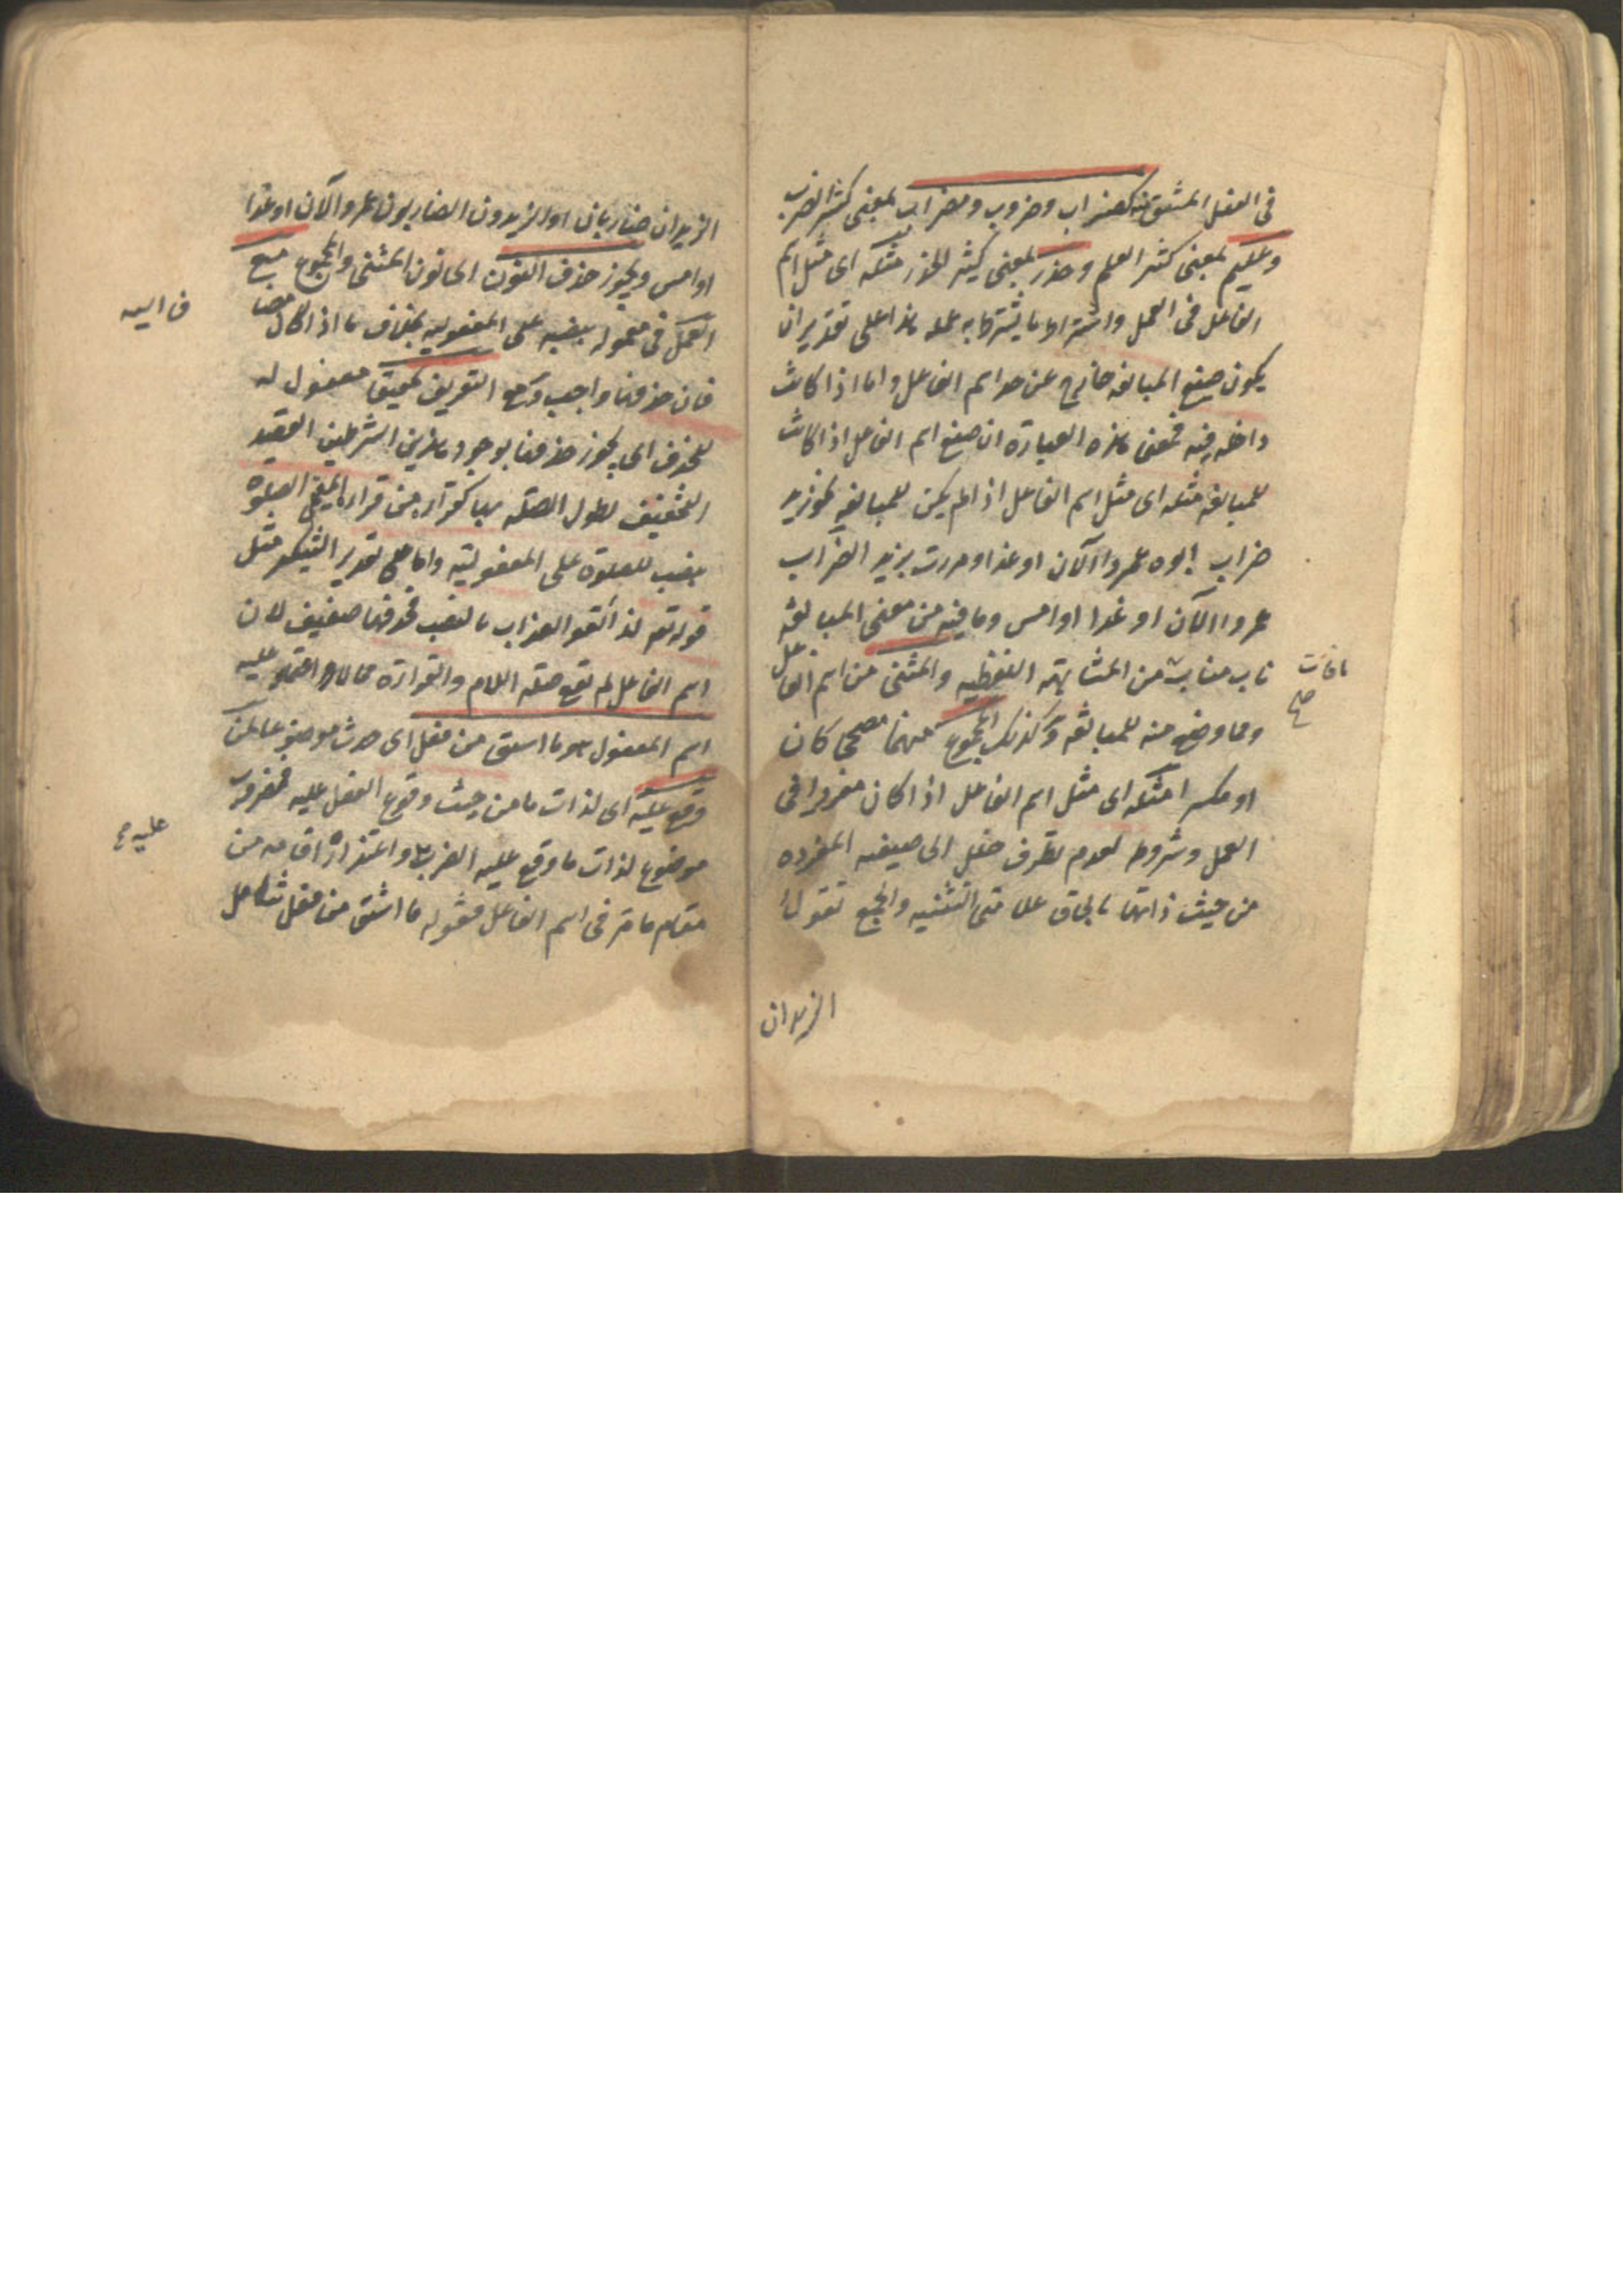 فى الفعل المشتق منه كضراب وضروب ومضراب بمعنى كثير الضرب
وعليم بمعنى كثير العلم وحذر بمعنى كثير الحذر مثله اى مثل اسم
الفاعل فى العمل واشتراط ما يشترط به عمله هذا على تقدير ان
يكون صيغ المبالغه خارج عن حد اسم الفاعل واما اذا كانت
داخله فيه فمعنى هذه العبارة ان صيغ اسم الفاعل اذا كانت
للمبالغه مثله اى مثل اسم الفاعل اذا لم يكن للمبالغه نحو زيد
ضراب ابوه عمروا الآن او غدا ومررت بزيد الضراب
عمروا الآن او غدا او امس وما فيه من معنى المبالغه
ناب مناب من المشابهة اللفظيه والمثنى من اسم الفاعل
ما فات
صح
ومما وضع منه للمبالغه وكذلك المجموع منهما مصححا كان
او مكسرا مثله اى مثل اسم الفاعل اذا كان مفردا فى
العمل وشروطه لعدم تطرق خلل الى صيغه المفرده
من حيث ذاتها بالحاق علامتى التثنيه والجمع تقول
الزيدان
الزيدان ضاربان او الزيدون الضاربون عمروا الآن او غدا
او امس ويجوز حذف النون اى نون المثنى والمجموع مع
العمل فى معموله بنصبه على المفعوليه بخلاف ما اذا كان مضا
فا اليه
فان حذفها واجب ومع التعريف تخفيفا مفعول له
للحذف اى يجوز حذفها بوجود هذين الشرطين القصد
التخفيف لطول الصله بها كقراءة من قراء المقيمى الصلوة
بنصب الصلوة على المفعوليه واما على تقدير التنكير مثل
قوله تعم لذائقو العذاب بالنصب فحذفها ضعيف لان
اسم الفاعل لم تقع صله اللام والقراءة مما لا اعتماد عليه
اسم المفعول هو ما اشتق من فعل اى حدث موضوعا لمن
وقع عليه اى لذات ما من حيث وقوع الفعل عليه فمضروب
موضوع لذات ما وقع عليه الضرب واعتذار اقامه من
عليه صح
مقام ما مر فى اسم الفاعل فقوله ما اشتق من فعل شامل